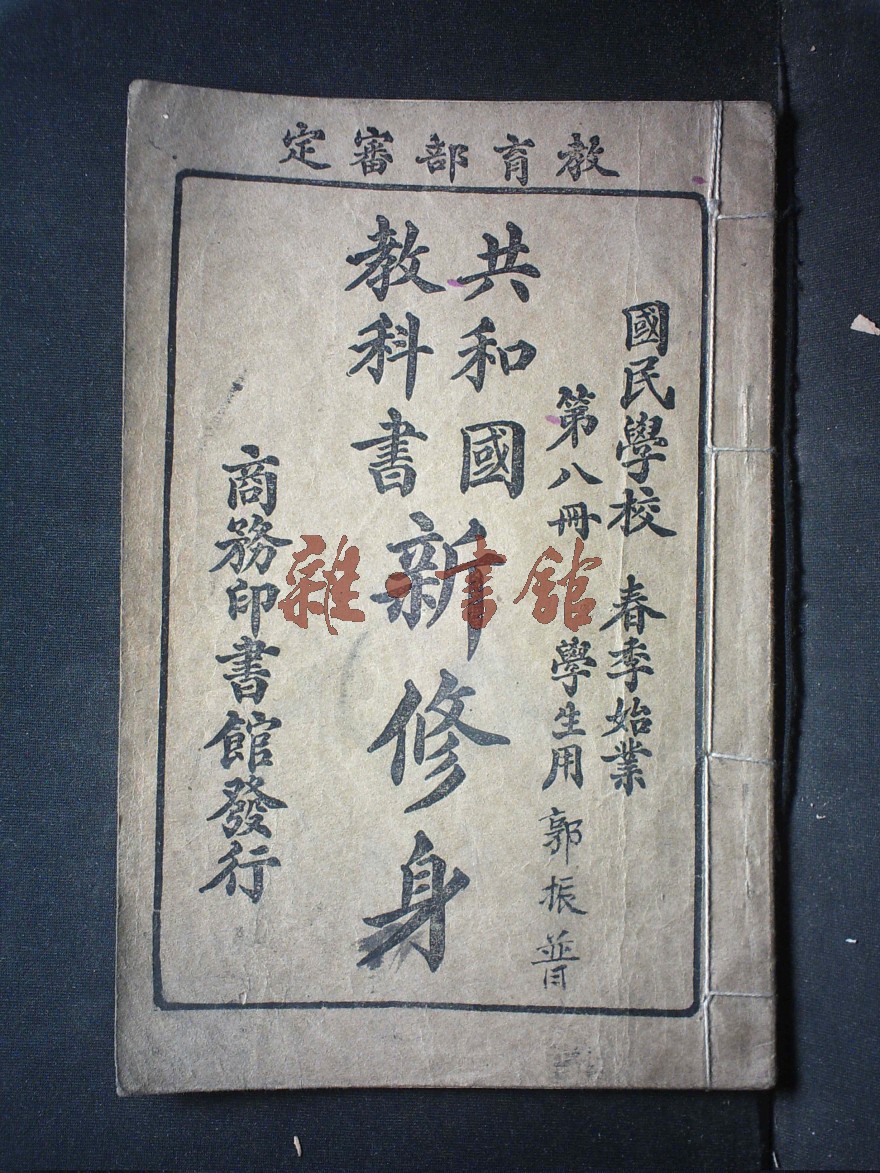 教育部審定
國民學校 春季始業
第八冊 學生用 郭振普
共和國
教科書
新修身
商務印書館發行
雜·書館